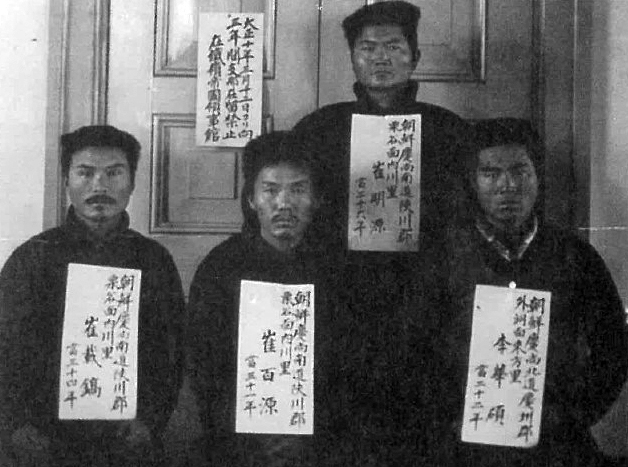 大正十年三月十二日ヨリ向
三年間支那在留禁止
在鐵嶺帝國領事館
朝鮮慶尚南道陜川郡
栗谷面内川里
崔明源
當二十六年
朝鮮慶尚南道陜川郡
栗谷面内川里
崔載鎬
當三十四年
朝鮮慶尚南道陜川郡
栗谷面内川里
崔百源
當三十一年
朝鮮慶尚北道慶州郡
外洞面末方里
李華碩
當二十二年